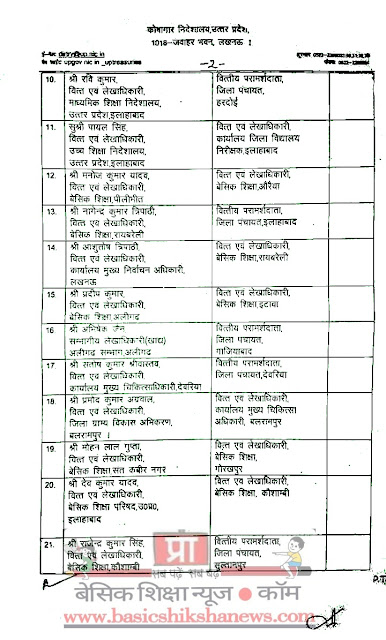 कोषागार निदेशालय,उत्तर प्रदेश,
1018-जवाहर भवन, लखनऊ ।
-2-
10. श्री रवि कुमार, वित्तीय परामर्शदाता,
वित्त एवं लेखाधिकारी, जिला पंचायत,
माध्यमिक शिक्षा निदेशालय, हरदोई
उत्तर प्रदेश,इलाहाबाद
11. सुश्री पायल सिंह, वित्त एवं लेखाधिकारी,
वित्त एवं लेखाधिकारी, कार्यालय जिला विद्यालय
उच्च शिक्षा निदेशालय, निरीक्षक,इलाहाबाद
उत्तर प्रदेश,इलाहाबाद
12. श्री मनोज कुमार यादव, वित्त एवं लेखाधिकारी,
वित्त एवं लेखाधिकारी, बेसिक शिक्षा,औरैया
बेसिक शिक्षा,पीलीभीत
13. श्री नागेन्द्र कुमार त्रिपाठी, वित्तीय परामर्शदाता,
वित्त एवं लेखाधिकारी, जिला पंचायत,इलाहाबाद
बेसिक शिक्षा,रायबरेली
14. श्री आशुतोष त्रिपाठी, वित्त एवं लेखाधिकारी,
वित्त एवं लेखाधिकारी, बेसिक शिक्षा,रायबरेली
कार्यालय मुख्य निर्वाचन अधिकारी,
लखनऊ
15 श्री प्रदीप कुमार, वित्त एवं लेखाधिकारी,
वित्त एवं लेखाधिकारी, बेसिक शिक्षा,इटावा
बेसिक शिक्षा,अलीगढ़
16 श्री अभिषेक जैन, वित्तीय परामर्शदाता,
सम्भागीय लेखाधिकारी(खाद्य) जिला पंचायत,
अलीगढ़ सम्भाग,अलीगढ़ गाजियाबाद
17 श्री संतोष कुमार श्रीवास्तव, वित्तीय परामर्शदाता,
वित्त एवं लेखाधिकारी, जिला पंचायत,देवरिया
कार्यालय मुख्य चिकित्साधिकारी,देवरिया
18. श्री प्रमोद कुमार अग्रवाल, वित्त एवं लेखाधिकारी,
वित्त एवं लेखाधिकारी, कार्यालय मुख्य चिकित्सा
जिला ग्राम्य विकास अभिकरण, अधिकारी, बलरामपुर
बलरामपुर ।
19. श्री मोहन लाल गुप्ता, वित्त एवं लेखाधिकारी,
वित्त एवं लेखाधिकारी, बेसिक शिक्षा,
बेसिक शिक्षा,संत कबीर नगर गोरखपुर
20. श्री देव कुमार यादव, वित्त एवं लेखाधिकारी,
वित्त एवं लेखाधिकारी, बेसिक शिक्षा, कौशाम्बी
बेसिक शिक्षा परिषद,उ0प्र0,
इलाहाबाद
21. श्री राजेन्द्र कुमार सिंह, वित्तीय परामर्शदाता,
वित्त एवं लेखाधिकारी, जिला पंचायत,
बेसिक शिक्षा,कौशाम्बी सुल्तानपुर
प्रा
सब पढ़ें सब बढ़ें
बेसिक शिक्षा न्यूज • कॉम
www.basicshikshanews.com